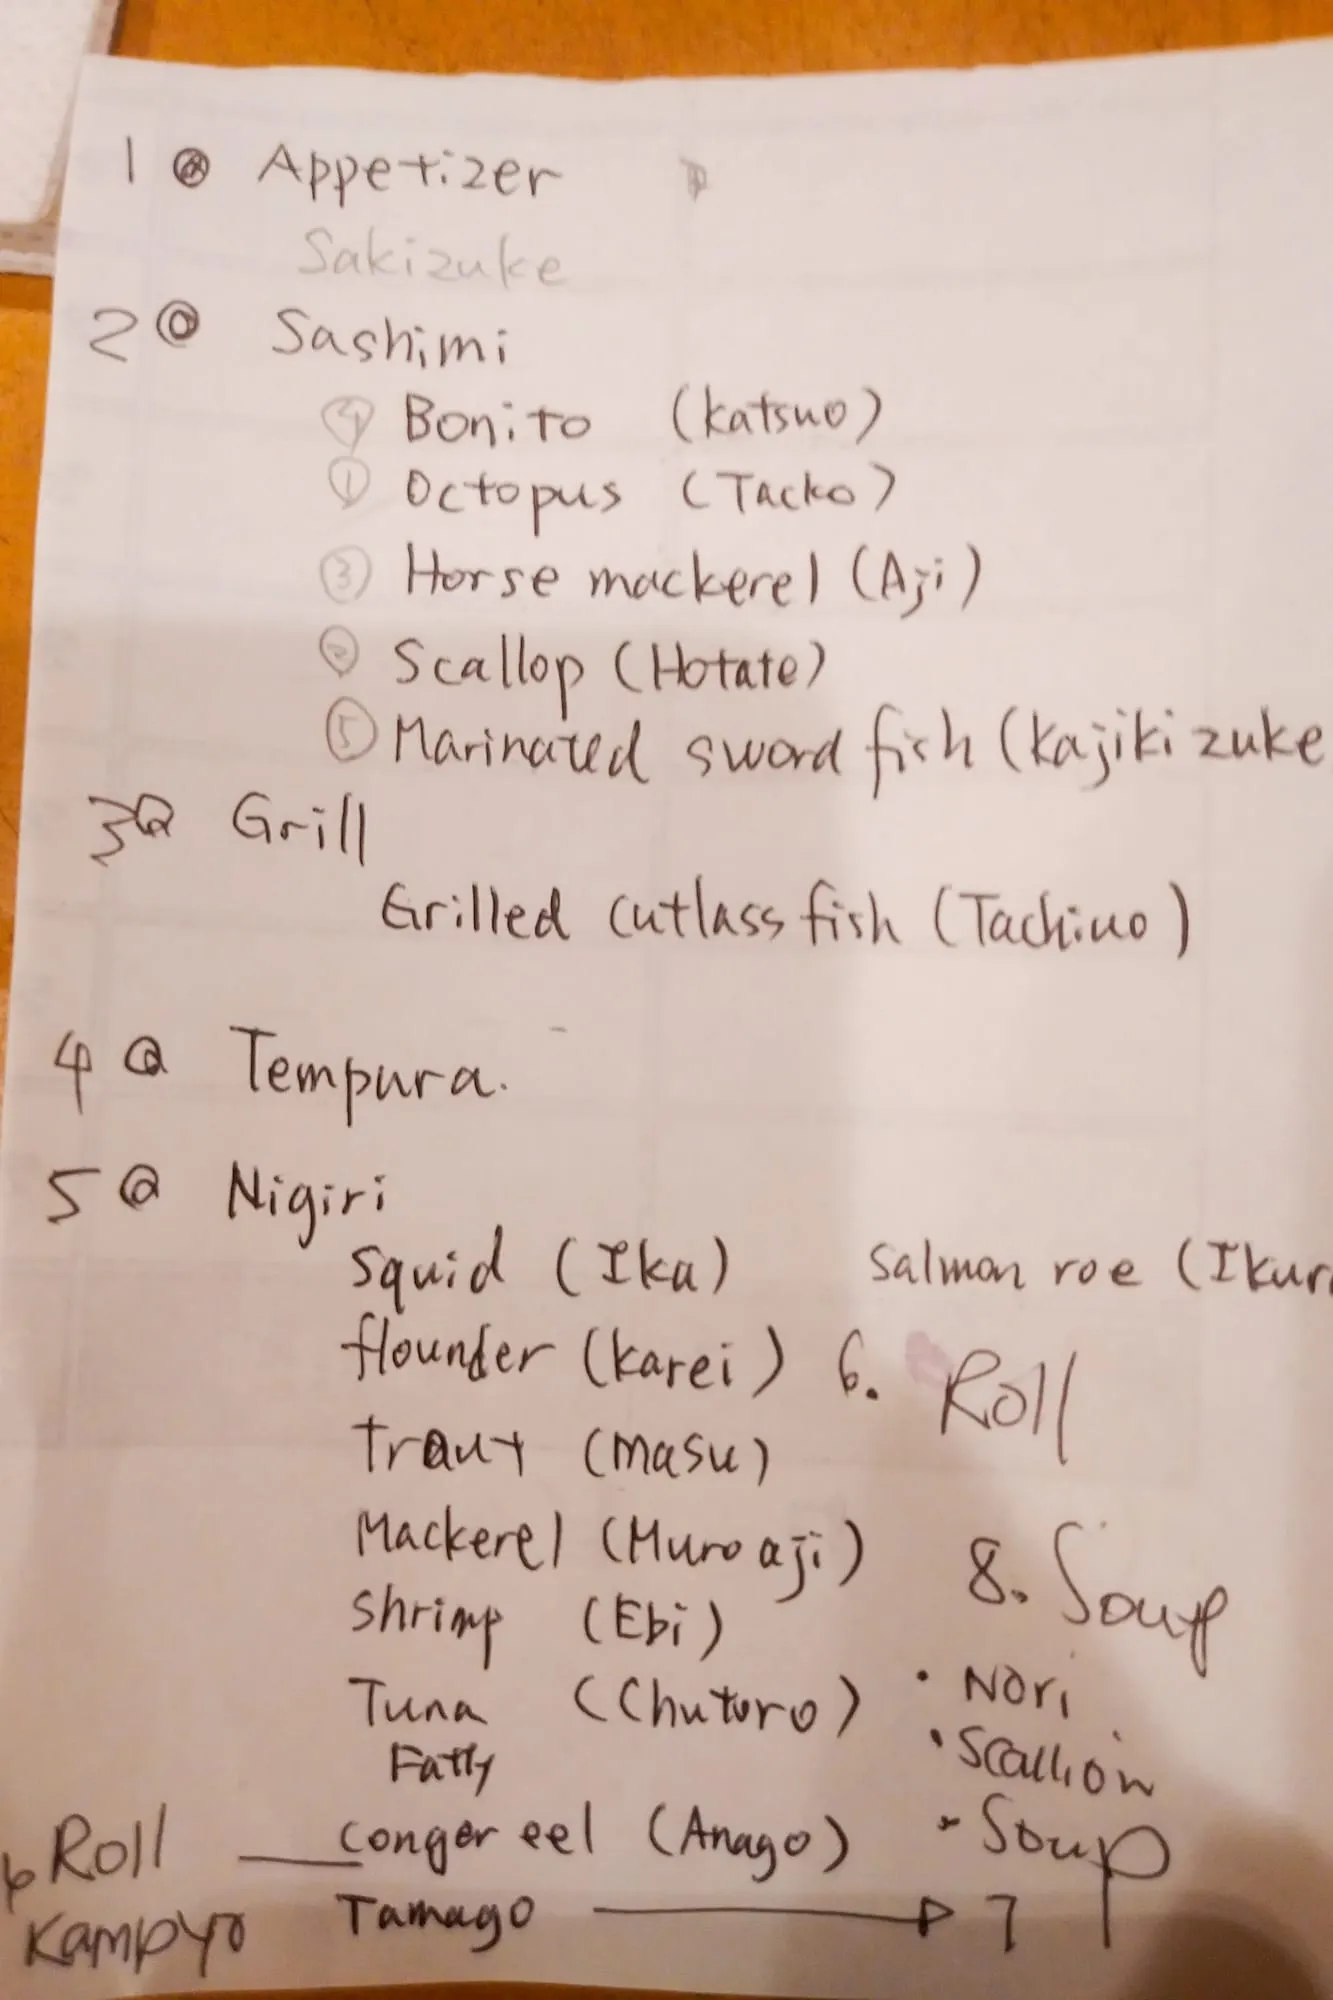 1 ◎ Appetizer
Sakizuke
2 ◎ Sashimi
④ Bonito (Katsuo)
① Octopus (Tacko)
③ Horse mackerel (Aji)
② Scallop (Hotate)
⑤ Marinated sword fish (Kajiki zuke
3 ◎ Grill
Grilled cutlass fish (Tachiuo)
4 ◎ Tempura.
5 ◎ Nigiri
Squid (Ika)
flounder (Karei)
Traut (Masu)
Mackerel (Muroaji)
Shrimp (Ebi)
Tuna (Chutoro)
Fatty
Conger eel (Anago)
Tamago → 7
Salmon roe (Ikura
6. Roll
8. Soup
· Nori
· Scallion
· Soup
6 Roll
Kampyo